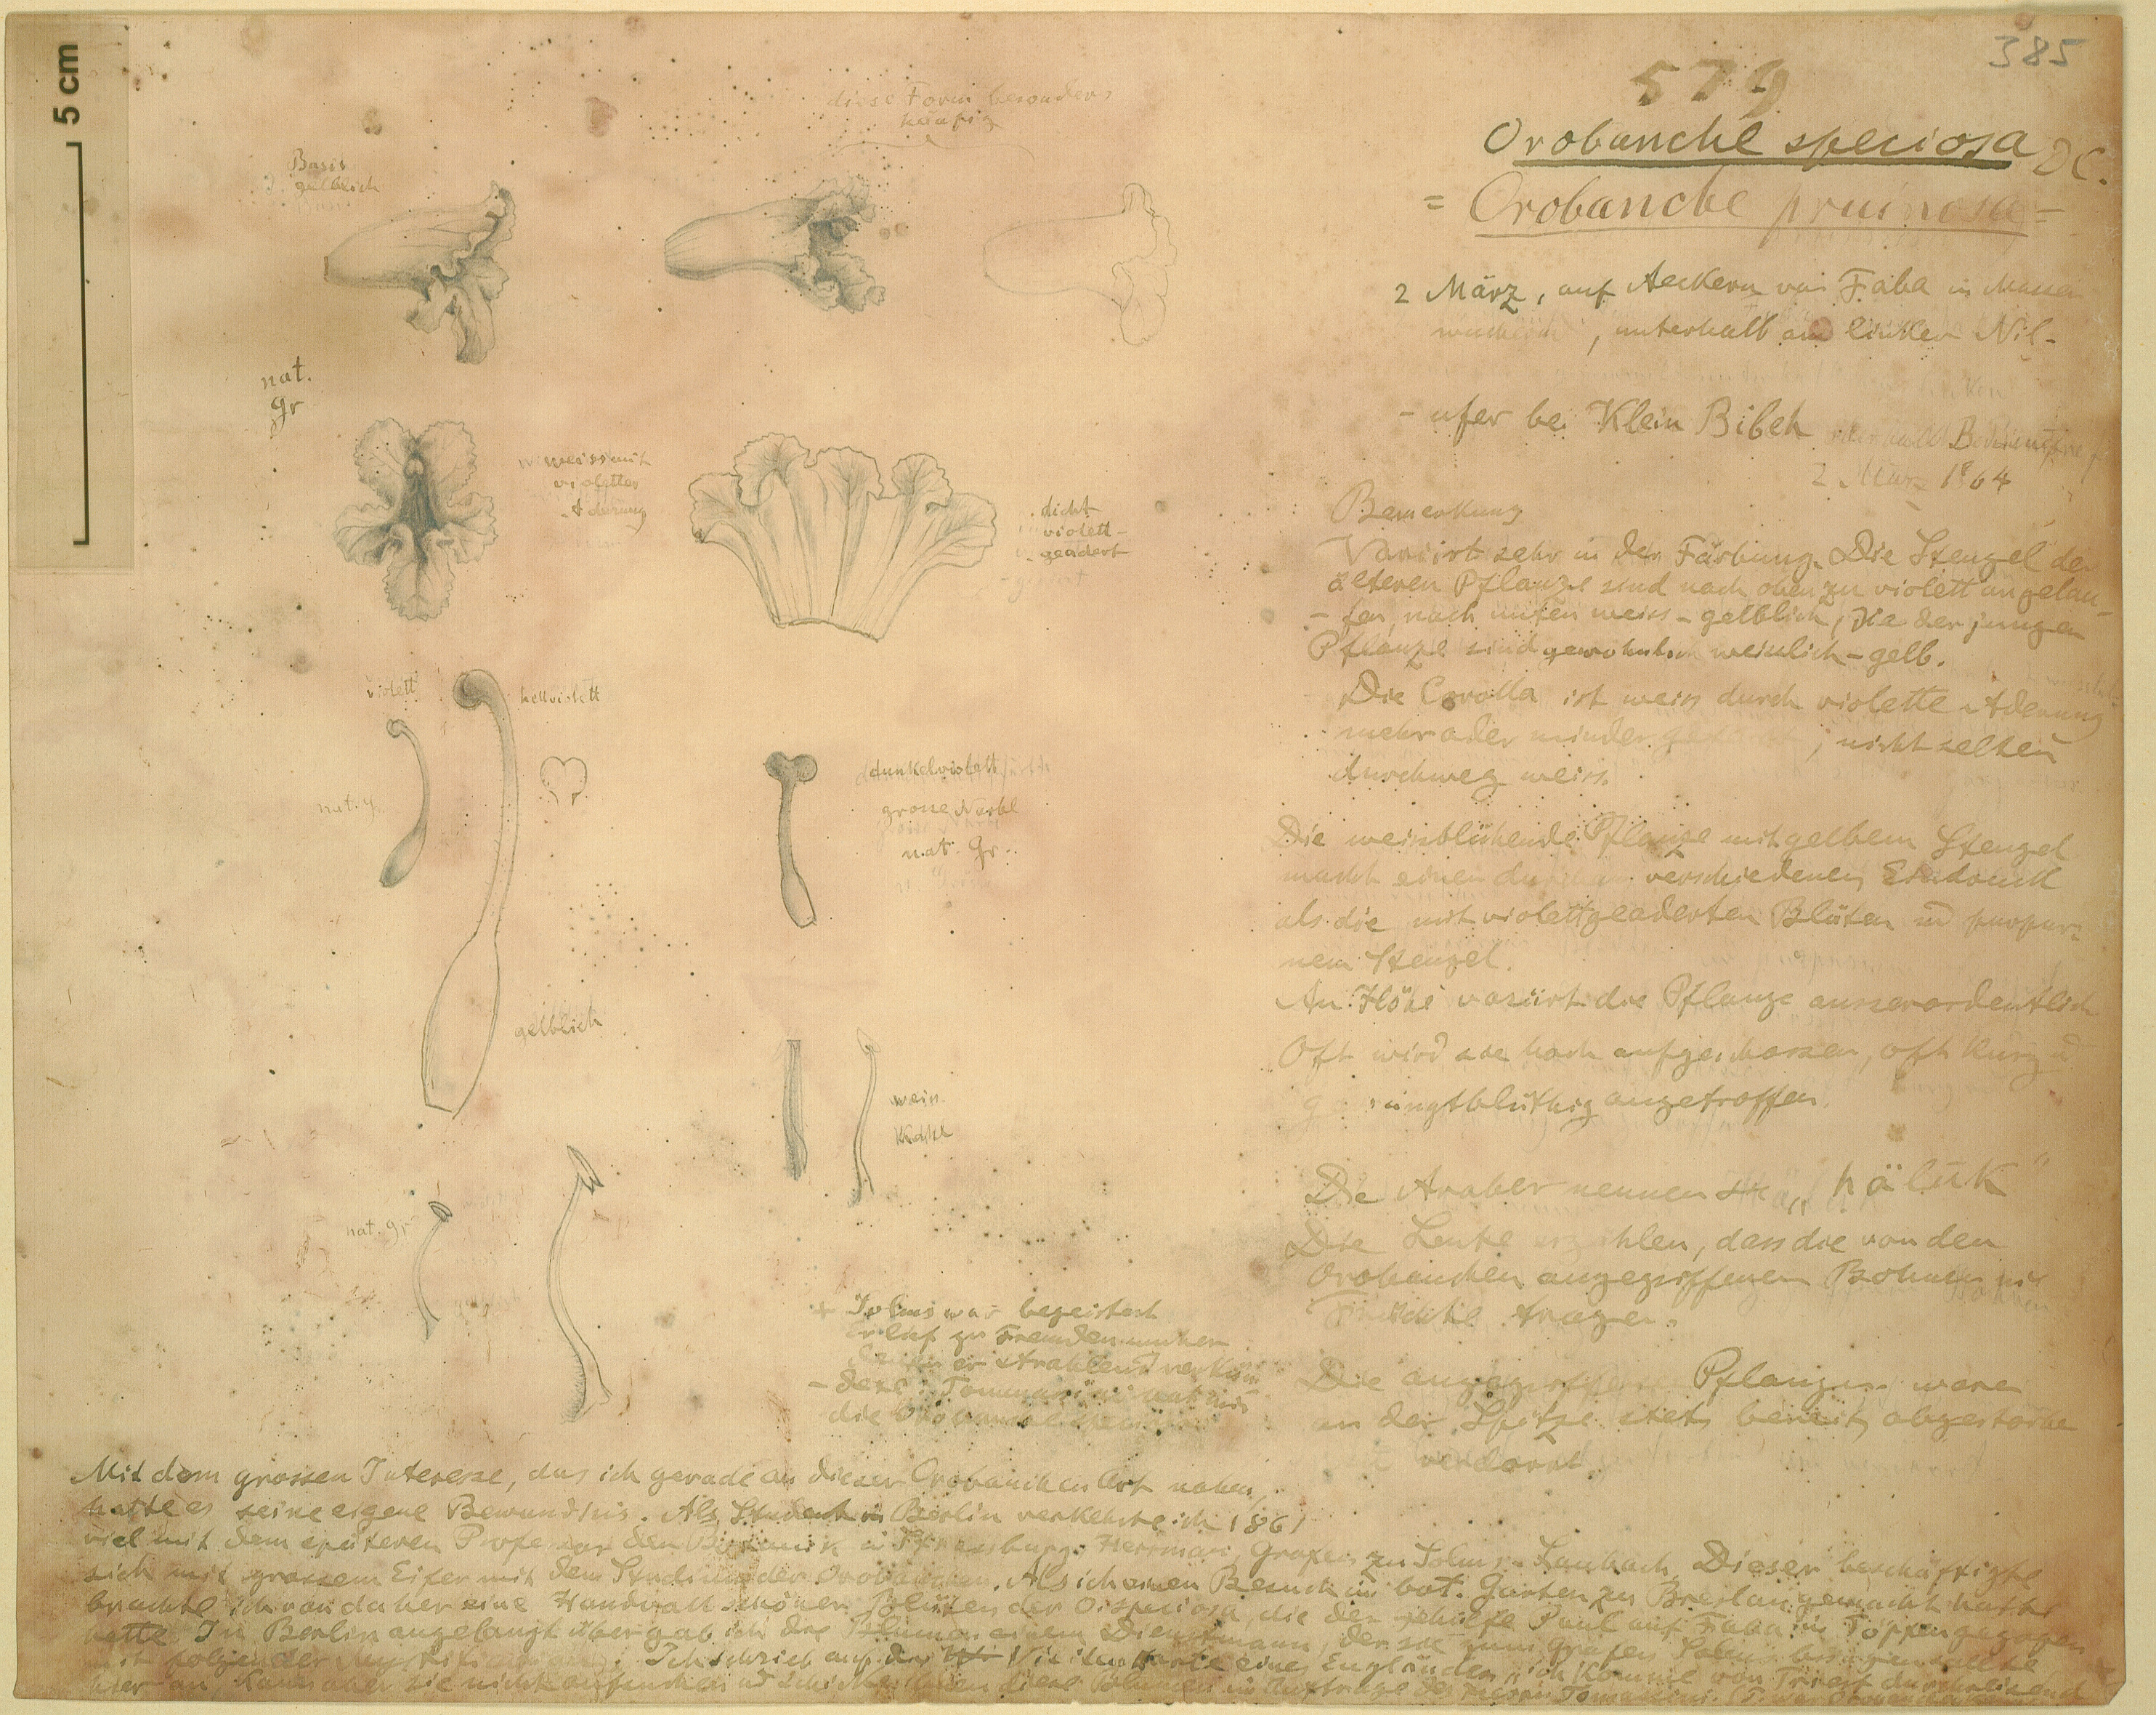 5 cm
385
579
Orobanche speciosa DC.
= Orobanche pruinosa =
2 März, auf Aeckern von Faba in Massen
, unterhalb am linken Nil-
- ufer bei Klein Bibeh
2 März 1864
Bemerkung
Variirt sehr in der Färbung. Die Stengel der
älteren Pflanze sind nach oben zu violett angelau-
- fen, nach unten weiss-gelblich, die der jungen
Pflanze sind gewöhnlich weisslich-gelb.
Die Corolla ist weiss durch violette Aderung
mehr oder minder , nicht selten
durchweg weiss
Die weissblühende Pflanze mit gelbem Stengel
macht einen verschiedenen Eindruck
als die mit violettgeaderten Blüten ud purpur-
nem Stengel.
An Höhe variirt die Pflanze ausserordentlich
Oft wird sie hoch aufgeschossen, oft kurz ud
angetroffen.
Die Araber nennen sie „hālūk"
Die Leute erzählen, dass die von den
Orobanchen angegriffenen Bohnen nie
Früchte tragen.
Die angegriffenen Pflanzen waren
an der Spitze stets bereits abgestorben
verdorrt.
diese Form besonders
häufig
Basis
gelblich
nat.
gr
weiss mit
violetter
Aderung
dicht
violett-
geadert
violett
hellviolett
nat. g.
dunkelviolett
grosse Narbe
nat. Gr.
gelblich
weiss
nat. gr
+ Solms war begeistert
Er lief zu Freunden umher
er strahlend verkün
- dete: Tommasini hat mir
die Orobanche
Mit dem grossen Interesse, das ich gerade an dieser Orobanchen Art nahm,
hatte es seine eigene Bewandtnis. Als Student in Berlin verkehrte ich 1861
viel mit dem späteren Professor der Botanik in Strassburg: Herrman Grafen zu Solms-Laubach. Dieser beschäftigte
sich mit grossem Eifer mit dem Studium der Orobanchen. Als ich einen Besuch im bot. Garten zu Breslau gemacht hatte
brachte ich von daher eine Handvoll schöner Blüten der O. speciosa, die der Gehilfe Paul auf Faba in Töpfen gezogen
hatte. In Berlin angelangt übergab ich die Blumen einem Dienstmann, der sie zum Grafen Solms
mit folgender . Ich schrieb auf die Visitenkarte eines Engländers „ich komme von Triest durchreisend
hier an, kann aber sie nicht aufsuchen ud schicke Ihnen diese Blumen im Auftrage des Herrn Tommasini.